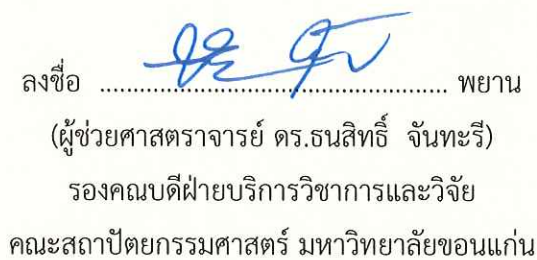 ลงชื่อ ........................................................ พยาน
(ผู้ช่วยศาสตราจารย์ ดร.ธนสิทธิ์ จันทะรี)
รองคณบดีฝ่ายบริการวิชาการและวิจัย
คณะสถาปัตยกรรมศาสตร์ มหาวิทยาลัยขอนแก่น